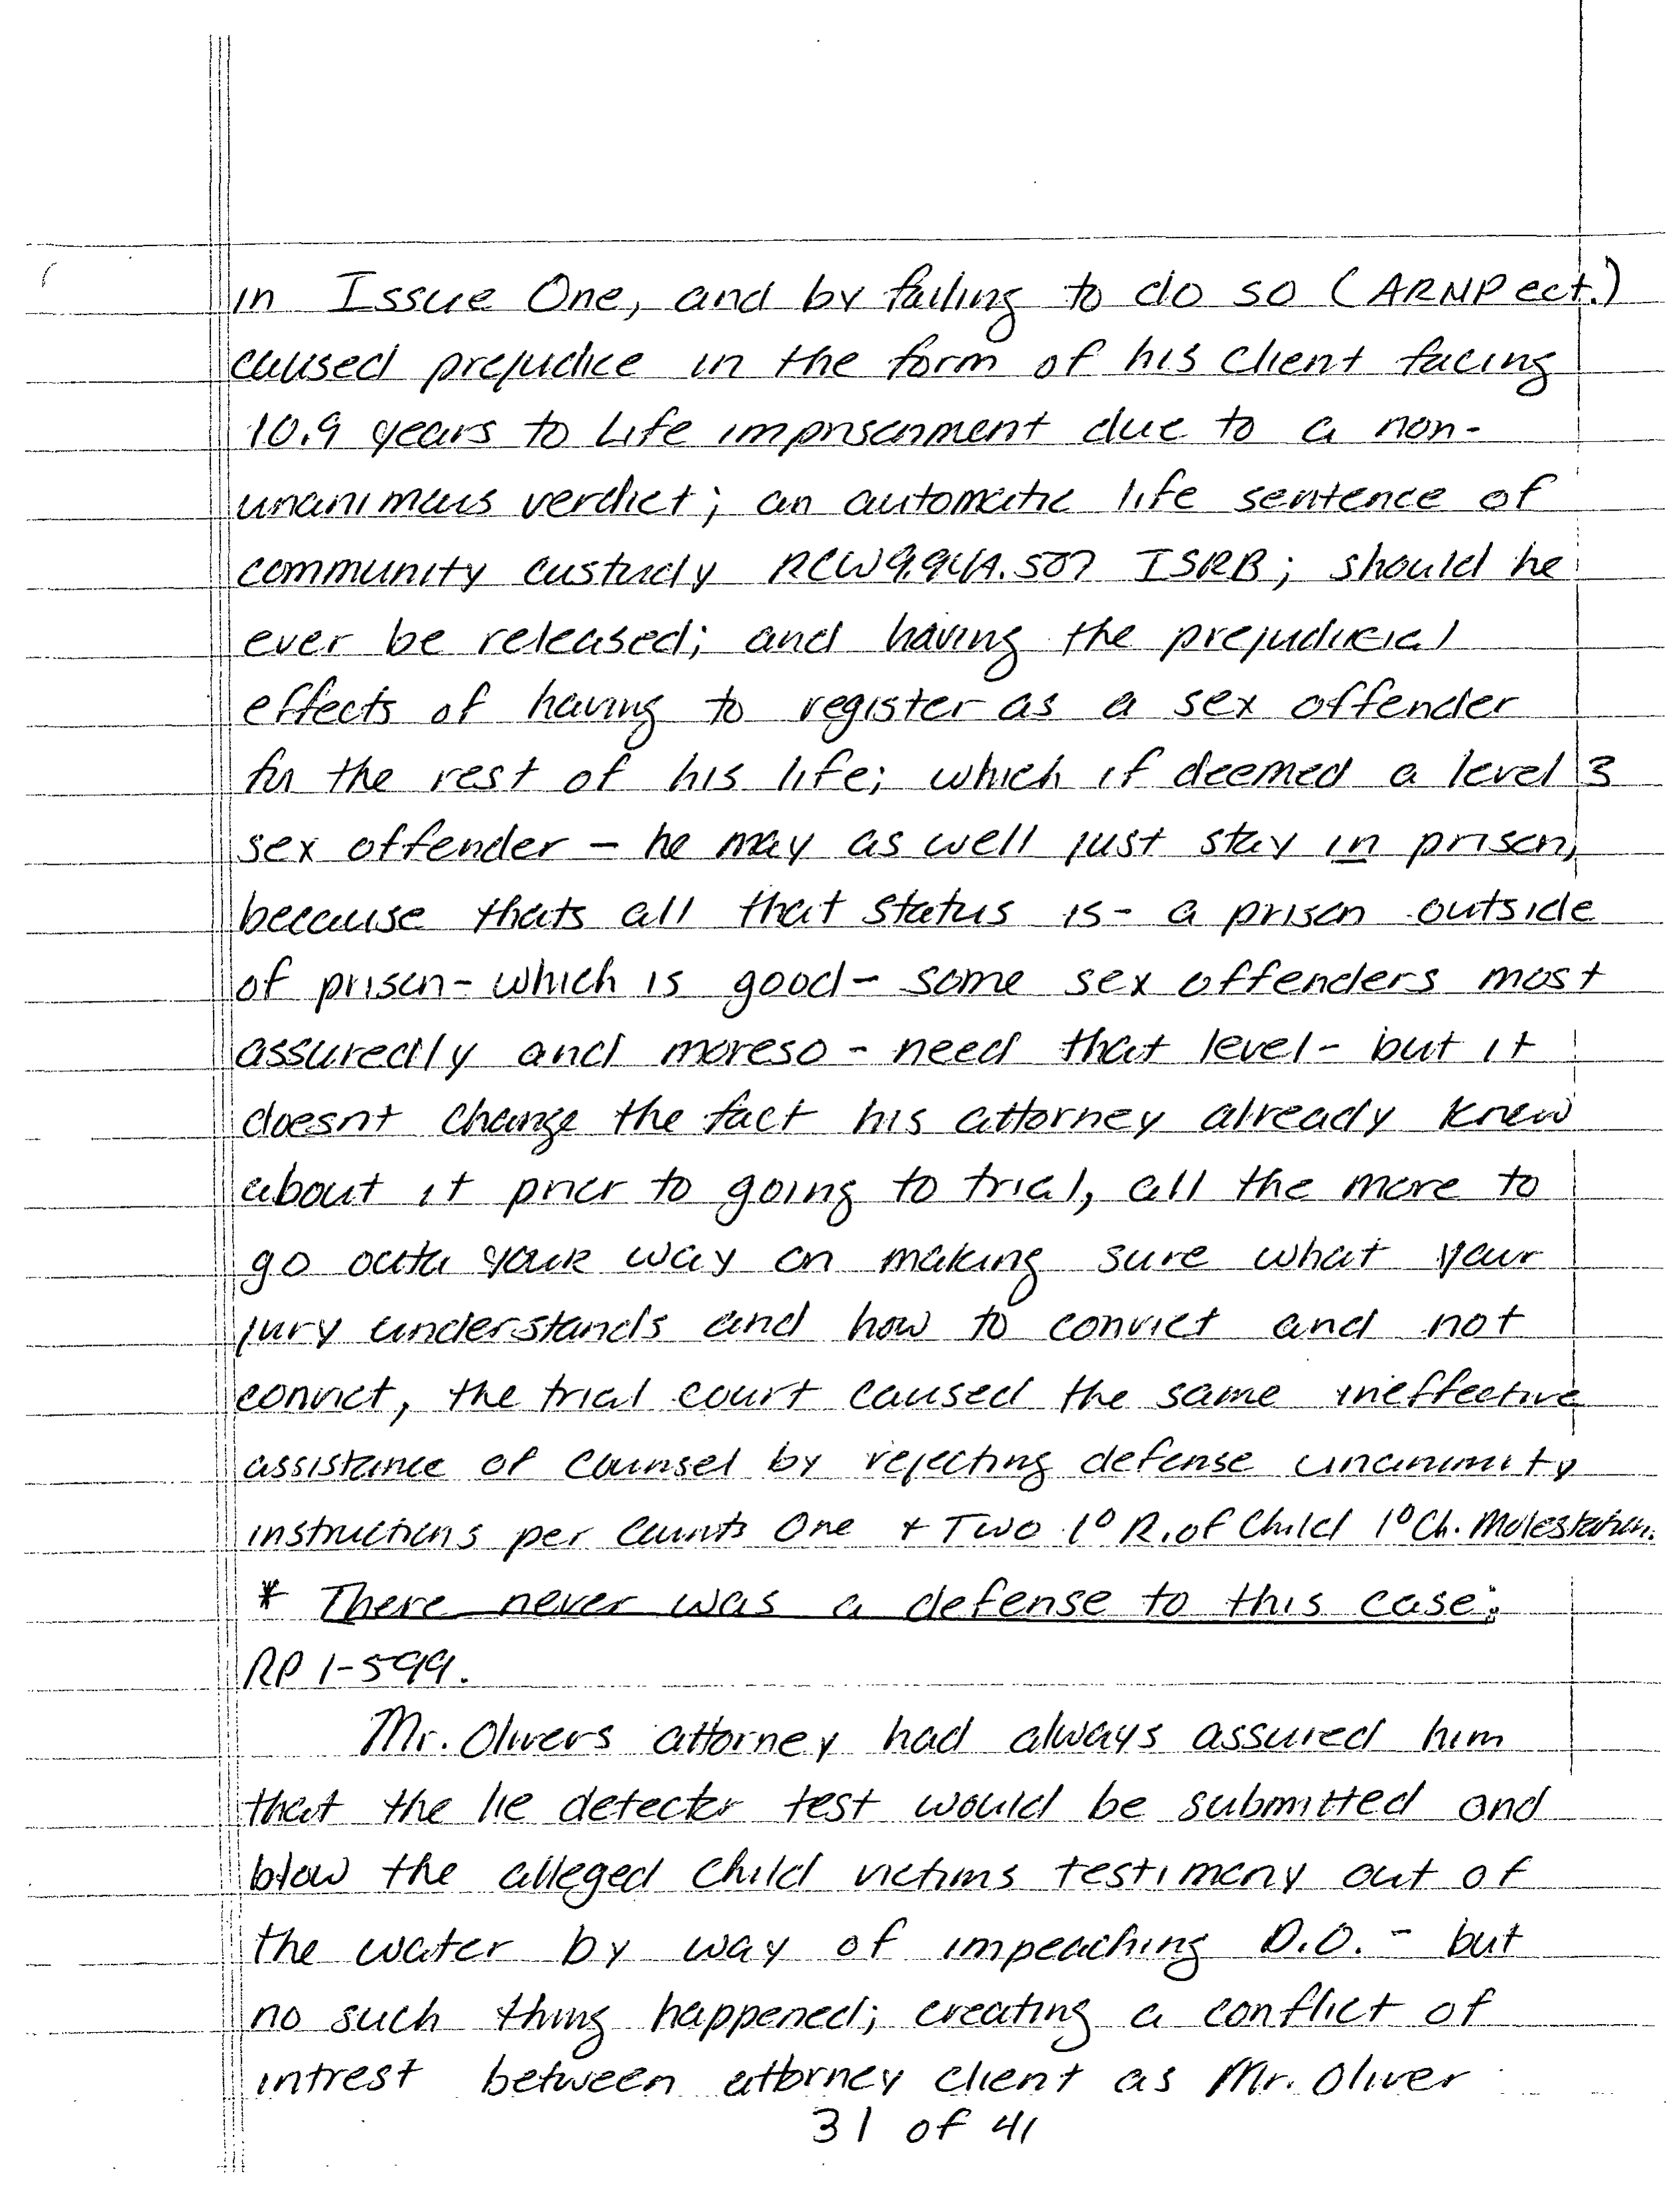 in Issue One, and by failing to do so (ARNP ect.)
caused prejudice in the form of his client facing
10.9 years to Life imprisonment due to a non-
unanimous verdict; an automatic life sentence of
community custudy RCW9.94A.507 ISRB; should he
ever be released; and having the prejudicial
effects of having to register as a sex offender
for the rest of his life; which if deemed a level 3
sex offender - he may as well just stay in prison,
because thats all that status is - a prison outside
of prison - which is good - some sex offenders most
assuredly and moreso - need that level - but it
doesnt change the fact his attorney already knew
about it prior to going to trial, all the more to
go outa your way on making sure what your
jury understands and how to convict and not
convict, the trial court caused the same ineffective
assistance of counsel by rejecting defense unanimity
instructions per Counts One + Two 1° R. of Child 1° Ch. Molestation.
* There never was a defense to this case:
RP 1-599.
Mr. Olivers attorney had always assured him
that the lie detector test would be submitted and
blow the alleged child victims testimony out of
the water by way of impeaching D.O. - but
no such thing happened; creating a conflict of
intrest between attorney client as Mr. Oliver
31 of 41